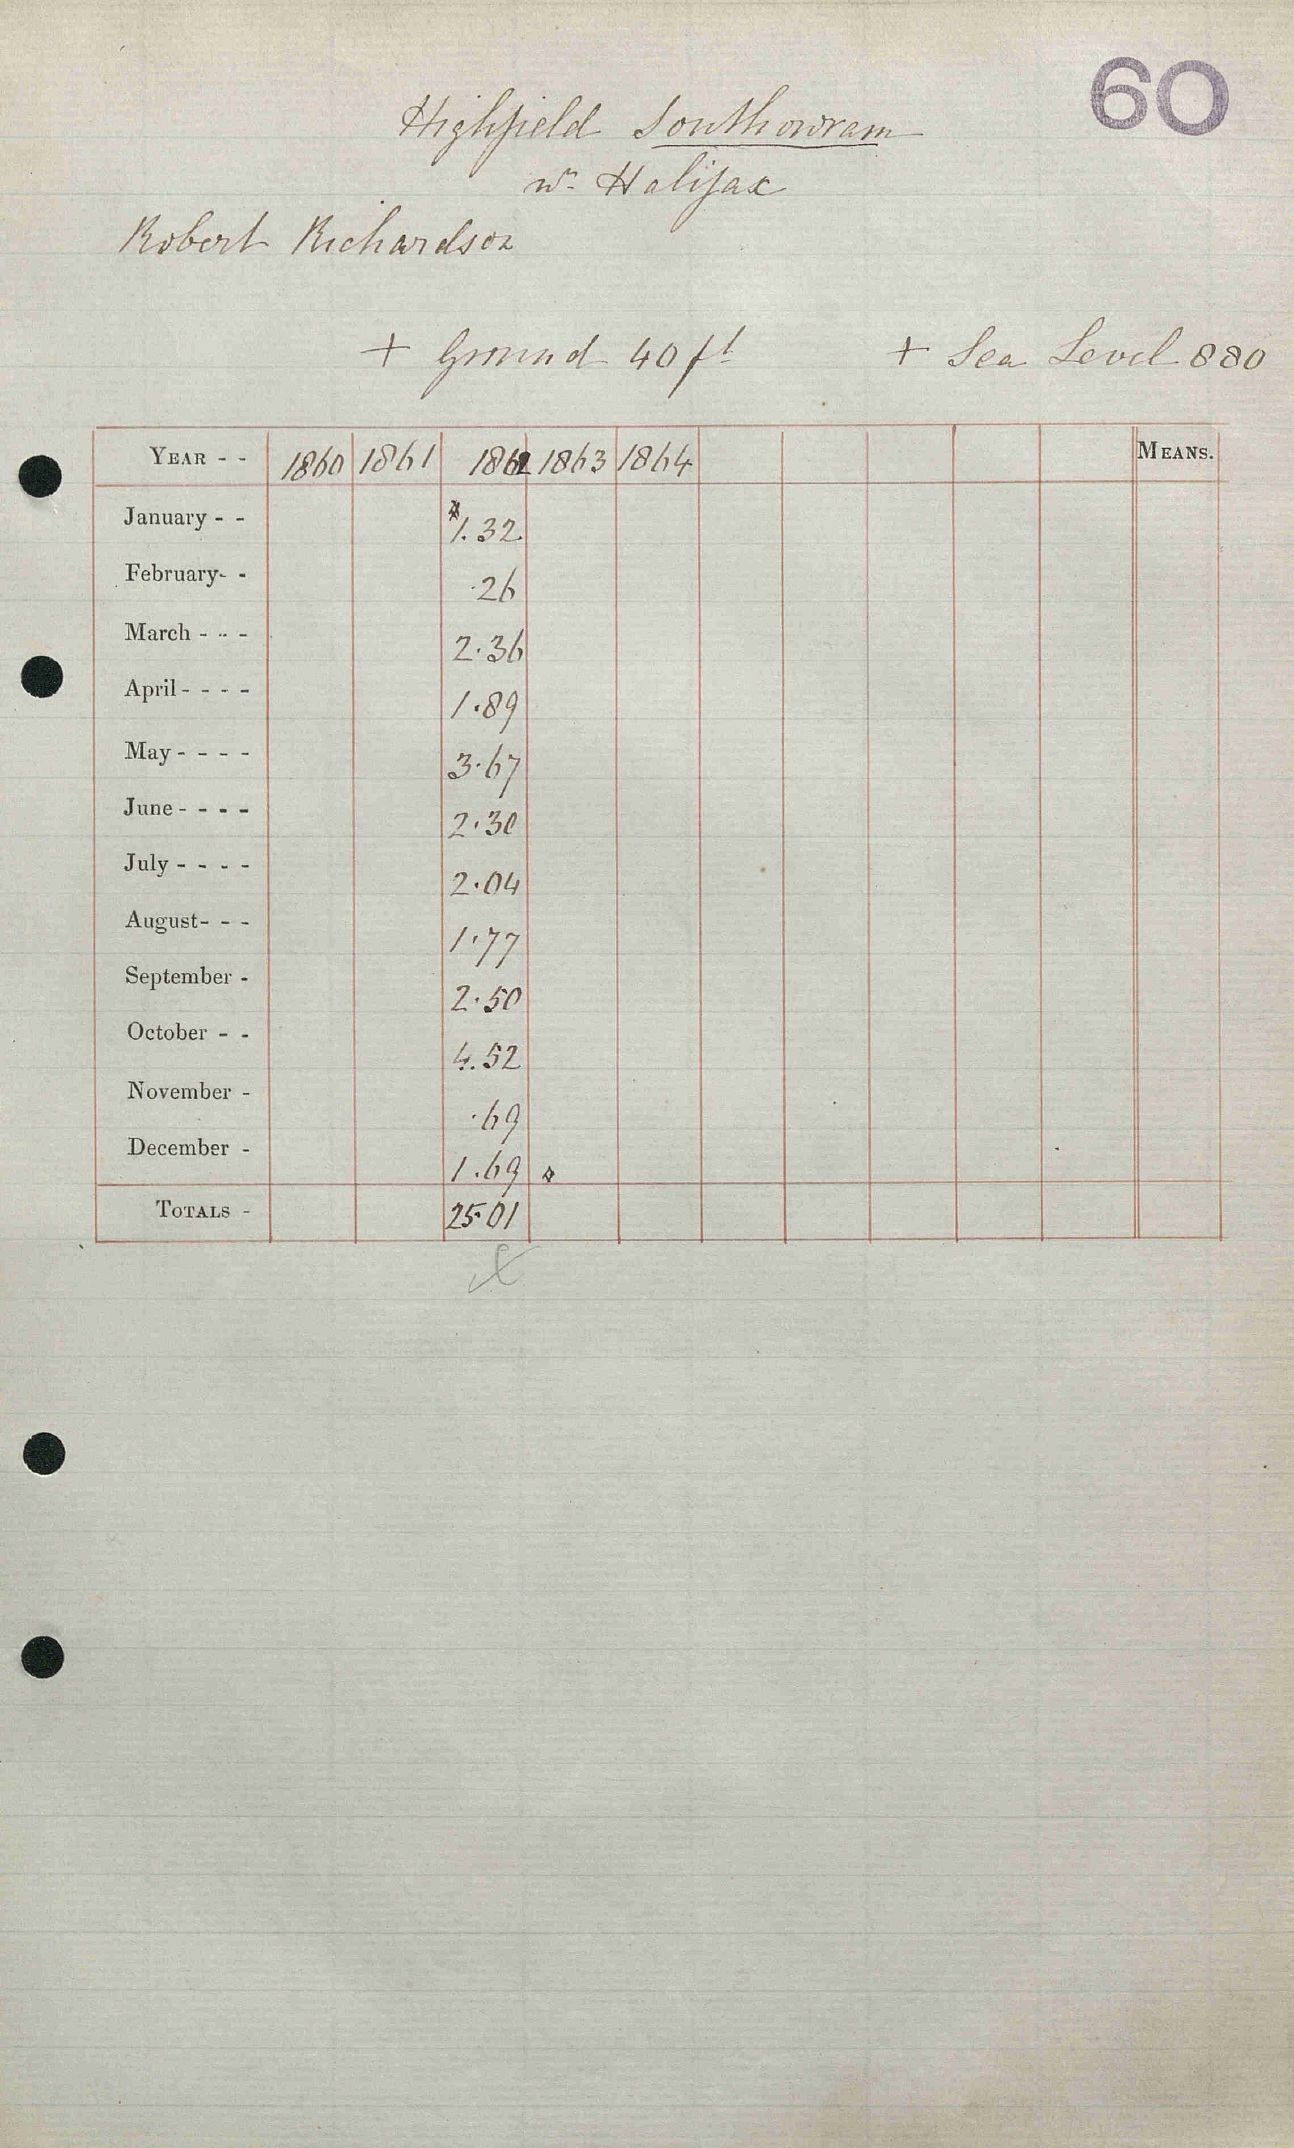 60
Highfield Southowram
nr Halifax
Robert Richardson
+ Ground 40 ft + Sea Level 880
YEAR - - 1860 1861 1862 1863 1864 MEANS.
January - - 1.32
February- - .26
March - - - 2.36
April - - - - 1.89
May - - - - 3.67
June - - - - 2.30
July - - - - 2.04
August- - - 1.77
September - 2.50
October - - 4.52
November - .69
December - 1.69
TOTALS - 25.01